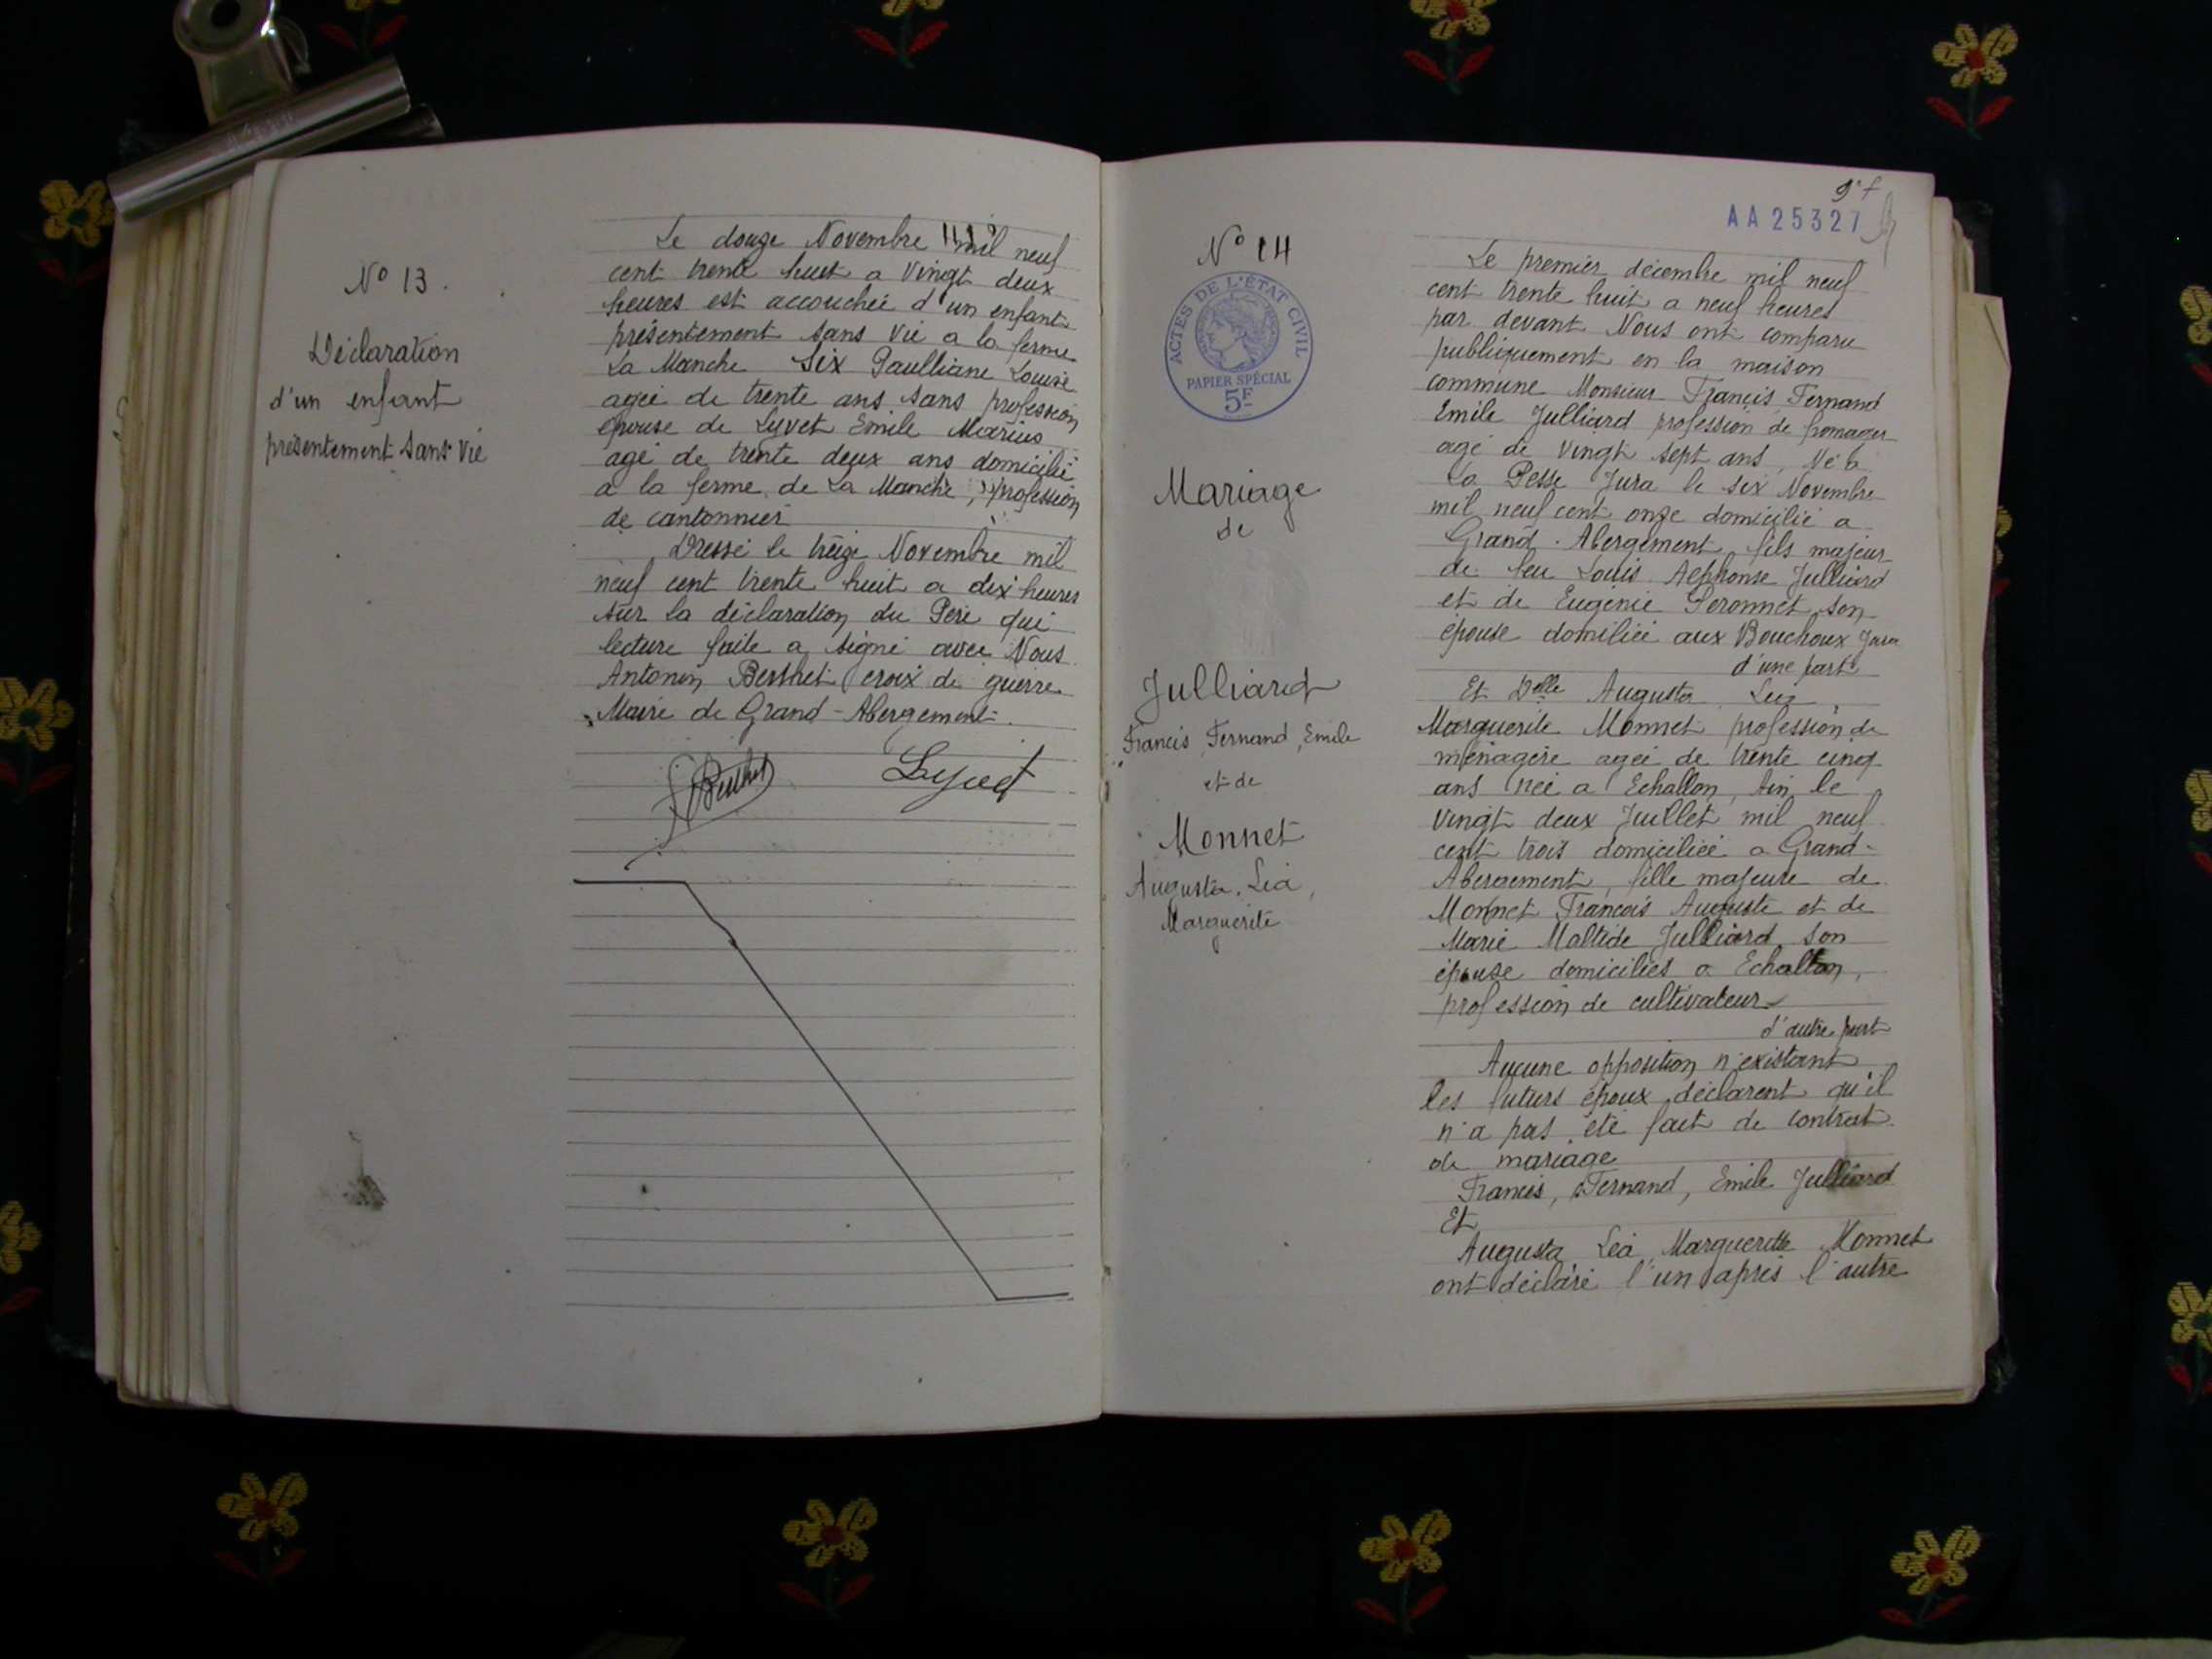 N° 13.
Déclaration
d'un enfant
présentement sans vie
Le douze Novembre mil neuf
cent trente huit a vingt deux
heures est accouchée d'un enfant
présentement sans vie a la ferme
La Manche Six Paulliane Louise
agée de trente ans sans profession
épouse de Luyet Emile Marius
agé de trente deux ans domicilié
a la ferme de La Manche, profession
de cantonnier
Dressé le treize Novembre mil
neuf cent trente huit a dix heures
sur la déclaration du Père qui
lecture faite a signé avec Nous
Antonin Berthet croix de guerre
Maire de Grand-Abergement.
ABerthet Luyet
AA 25327
N° 14
ACTES DE L'ÉTAT CIVIL
PAPIER SPÉCIAL
5F
Mariage
de
Julliard
Francis, Fernand, Emile
et de
Monnet
Augusta, Léa,
Marguerite
Le premier décembre mil neuf
cent trente huit a neuf heures
par devant Nous ont comparu
publiquement en la maison
commune Monsieur Francis Fernand
Emile Julliard profession de fromager
agé de vingt sept ans, Né a
La Pesse Jura le six Novembre
mil neuf cent onze domicilié a
Grand-Abergement, fils majeur
de feu Louis Alphonse Julliard
et de Eugénie Peronnet son
épouse domiliée aux Bouchoux Jura
d'une part
Et Delle Augusta Léa
Marguerite Monnet profession de
ménagère agée de trente cinq
ans née a Echallon, Ain le
vingt deux Juillet mil neuf
cent trois domiciliée a Grand-
Abergement, fille majeure de
Monnet François Auguste et de
Marie Maltide Julliard son
épouse domiciliés a Echallon,
profession de cultivateur
d'autre part
Aucune opposition n'existant
les futurs époux déclarent qu'il
n'a pas été fait de contrat
de mariage
Francis, Fernand, Emile Julliard
Et
Augusta Léa Marguerite Monnet
ont déclaré l'un après l'autre